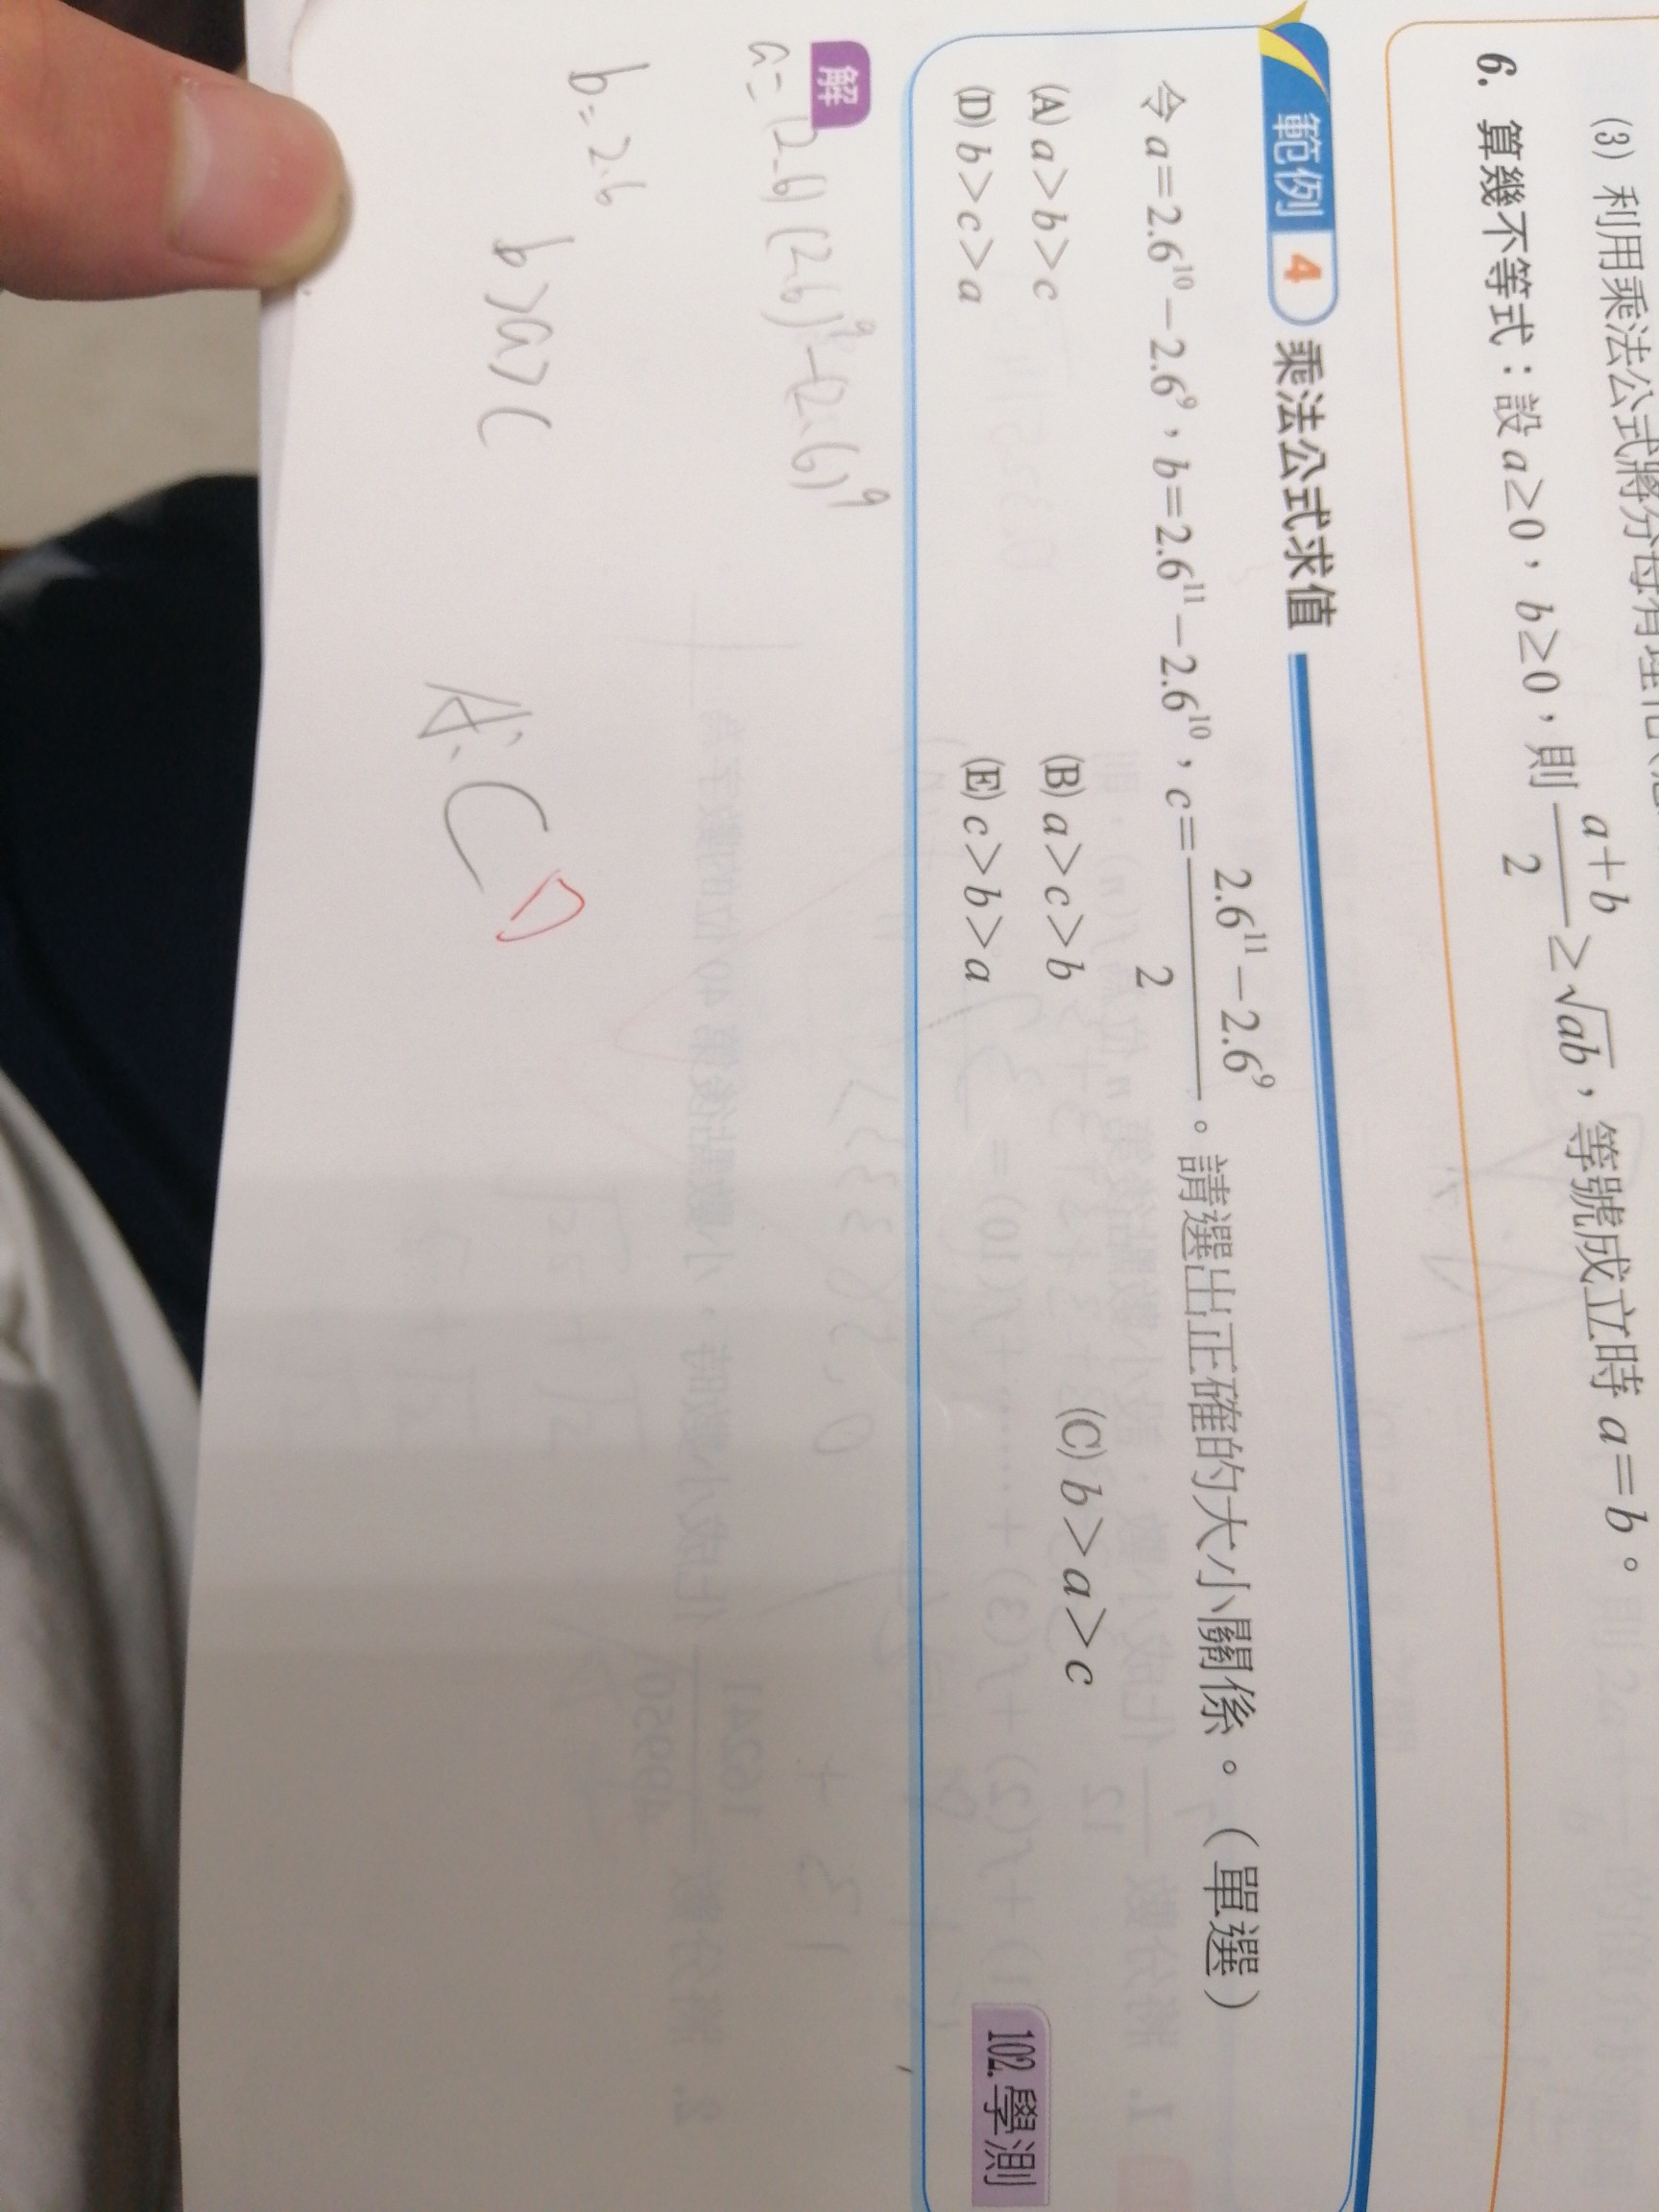 (3) 利用乘法公式將分母有理化
6. 算幾不等式：設 a≥0，b≥0，則 (a+b)/2 ≥ √ab，等號成立時 a=b。
範例 4 乘法公式求值
令 a=2.6¹⁰−2.6⁹，b=2.6¹¹−2.6¹⁰，c=(2.6¹¹−2.6⁹)/2。請選出正確的大小關係。（單選）
(A) a>b>c (B) a>c>b (C) b>a>c
(D) b>c>a (E) c>b>a
102.學測
解
a=(2.6)(2.6)⁹-(2.6)⁹
b=2.6
b>a>c
A: C